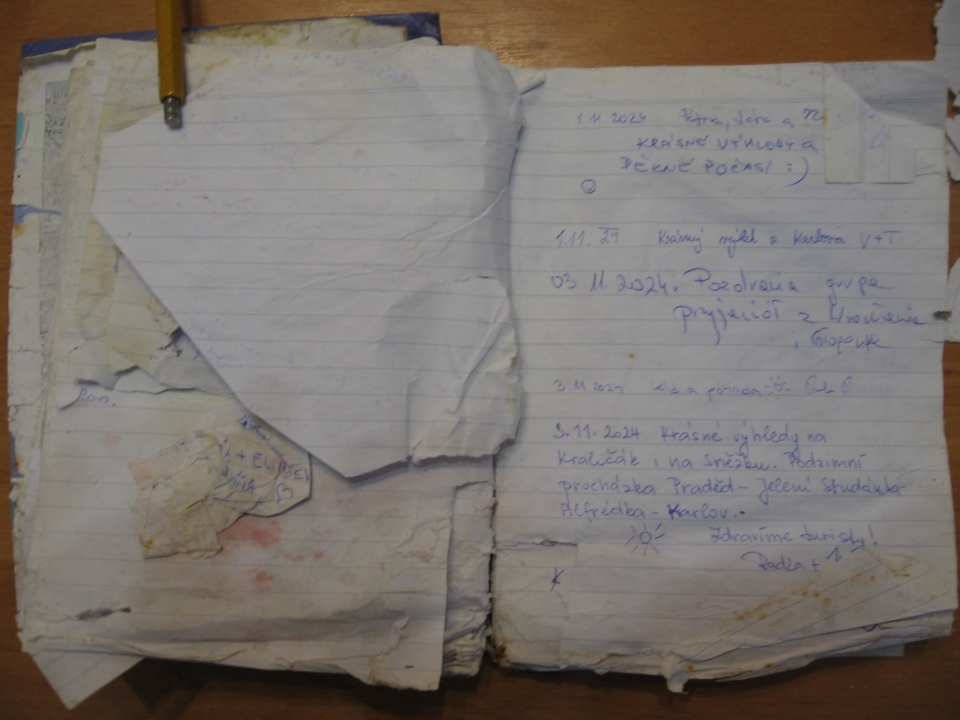 Pan.
+ EL
1.11.2024 Petra, Věra a
KRÁSNÉ VÝHLEDY A
PĚKNÉ POČASÍ :)
1.11. 24 Krásný výlet z Karlova V+T
03 11 2024. Pozdrawia grupa
przyjaciół z
3.11.2024 a pohoda
9.11. 2024 Krásné výhledy na
Kraličák i na Sněžku. Podzimní
procházka Praděd - Jelení Studánka -
Alfrédka - Karlov.
Zdravíme turisty!
Radka +